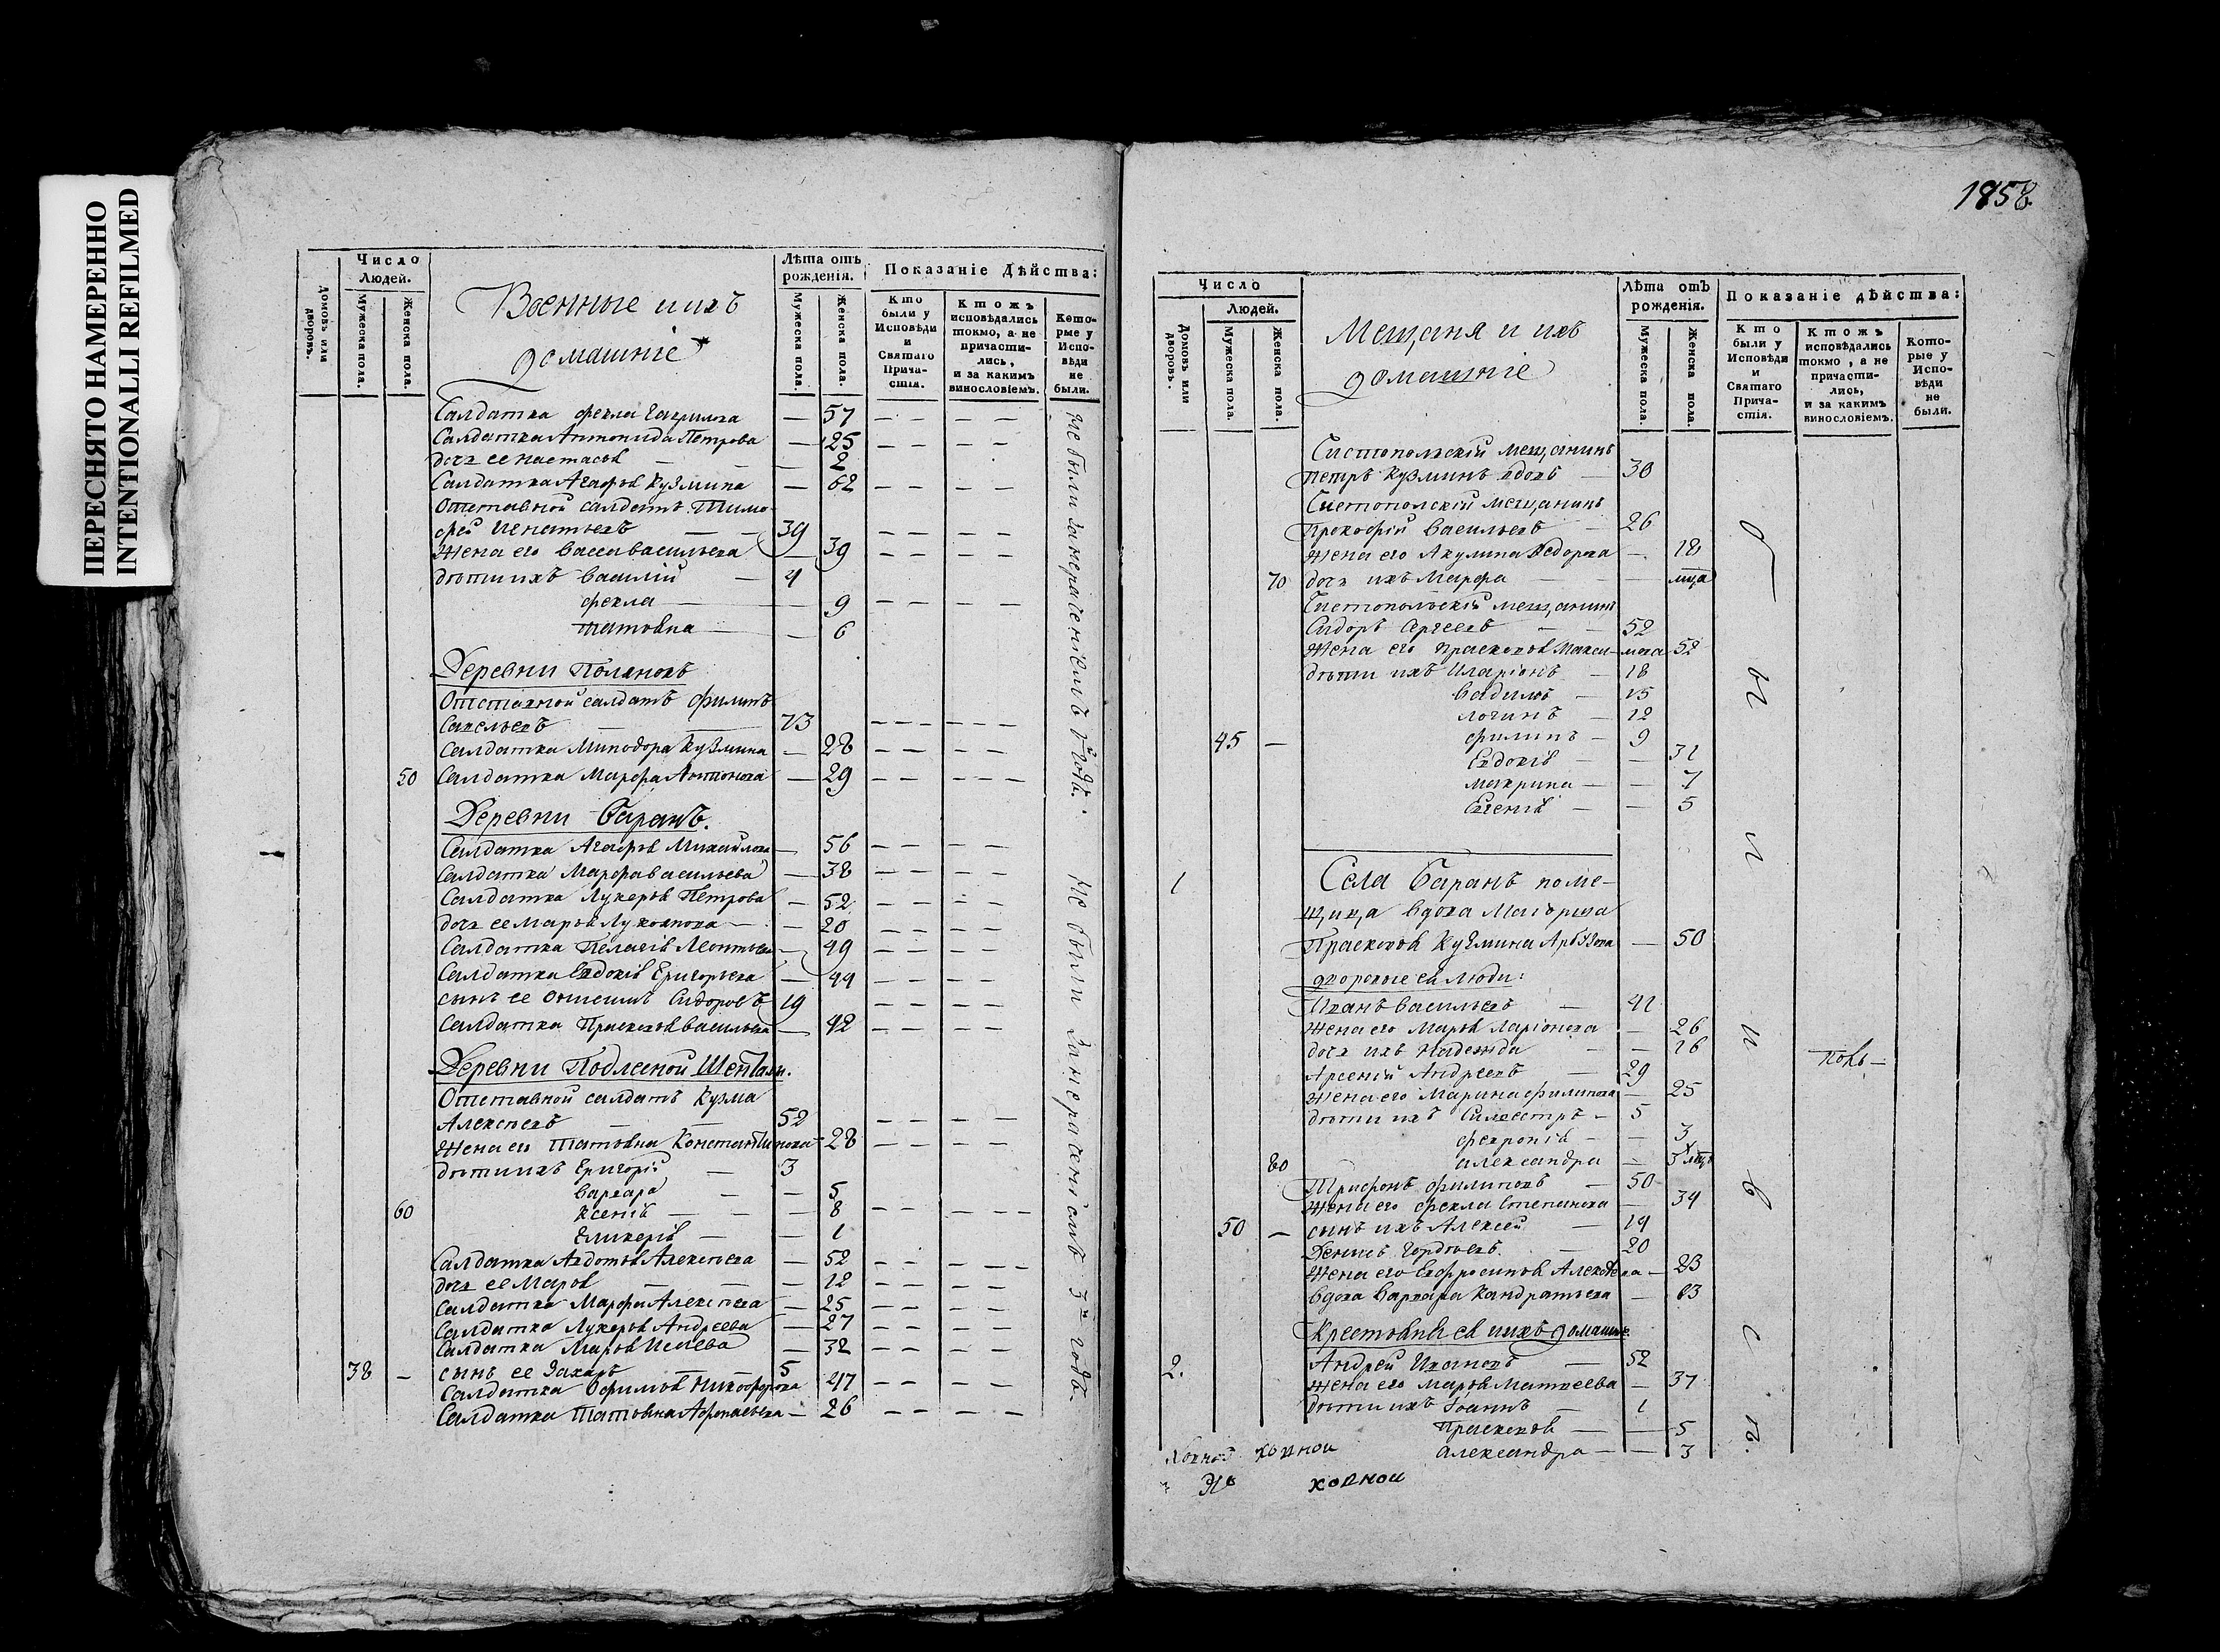 ПЕРЕСНЯТО НАМЕРЕННО
INTENTIONALLI REFILMED
Домовъ или дворовъ.
Число Людей.
Мужеска пола.
Женска пола.
Военные и ихъ
домашніе
Лѣта отъ рожденія.
Мужеска пола.
Женска пола.
Показаніе Дѣйства:
Кто были у Исповѣди и Святаго Причастія.
Ктожъ исповѣдались токмо, а не причастились, и за какимъ винословіемъ.
Которые у Исповѣди не были.
Салдатка Фекла Гаврилова — 57 — — —
Салдатка Антонида Петрова — 25 — — —
дочь ее Настасья — — 2
Салдатка Агафья Кузмина — 62 — — — —
Отставной салдатъ Тимо-
фей Игнатьевъ — 39 — — — —
Жена его Васса Васильева — 39 — — — —
дѣти ихъ Василій — 4
Фекла — — 9 — — — —
Татьяна — — 6
Деревни Полянокъ
Отставной салдатъ Филипъ
Савельевъ — — 73 — — — — — —
Салдатка Минодора Кузмина — 28 — — — —
50 Салдатка Марфа Антонова — 29 — — — — —
Деревни Баранъ.
Салдатка Агафья Михайлова — 56 — — — —
Салдатка Марфа Васильева — 38 — — — —
Салдатка Лукерья Петрова — 52 — — — —
дочь ее Марья Лукоянова — — 20 — — — —
Салдатка Пелагія Леонтьева — 49 — — — —
Салдатка Евдокія Григорьева — 44 — — — —
сынъ ее Онисимъ Сидоровъ 19 — — — —
Салдатка Прасковья Васильева — 42 — — — —
Деревни Подлесной Шенталы.
Отставной салдатъ Кузма
Алексѣевъ — — 52 — — — —
Жена его Татьяна Константинова 28 — — — —
дѣти ихъ Григорій — 3
Варвара — — 5
60 Ксенія — — — 8 — — — — —
Гликерія — — 1
Салдатка Авдотья Алексѣева — 52 — — — — —
дочь ее Марья — — — 12 — — — —
Салдатка Марфа Алексѣева — 25 — — — —
Салдатка Лукерья Андреева — 27 — — — —
Салдатка Марья Исаева — 32 — — — —
38 — сынъ ее Захаръ — 5
Салдатка Офимья Никифорова 47 — — — —
Салдатка Татьяна Афонасьева — 26 — — — —
Не были за нерачениемъ 1й годъ.
Не были за нерачениемъ 3й годъ.
1858
Число
Домовъ или дворовъ.
Людей.
Мужеска пола.
Женска пола.
Мещаня и ихъ
домашніе
Лѣта отъ рожденія.
Мужеска пола.
Женска пола.
Показаніе дѣйства:
Кто были у Исповѣди и Святаго Причастія.
Ктожъ исповѣдались токмо, а не причастились, и за какимъ винословіемъ.
Которые у Исповѣди не были.
Чистопольскій мещанинъ
Петръ Кузминъ вдовъ — 30
Чистопольскій мещанинъ
Прокофій Васильевъ — 26
Жена его Акулина Федорова — 18
70 дочь ихъ Марфа — — мца
Чистопольскій мещанинъ
Сидоръ Сергеевъ — — 52
Жена его Прасковья Макси-мова 52
дѣти ихъ Иларіонъ — 18
Вадимъ — 15
Логинъ — 12
45 — Филипъ — 9
Евдокія — — 31
Макрина — — 7
Евгенія — — 5
1 Села Баранъ поме-
щица вдова Маіорша
Прасковья Кузмина Арбузова — 50
дворовые ея люди:
Иванъ Васильевъ — 41
Жена его Марья Ларіонова — 26
дочь ихъ Надежда — — 16
Арсеній Андреевъ — 29
Жена его Марина Филипова — 25
дѣти ихъ Силвестръ — 5
Феврония — — 3
80 Александра — 3 мца
Трифонъ Филиповъ — 50
Жена его Фекла Степанова — 34
50 — сынъ ихъ Алексей — 14
Денисъ Гордѣевъ — 20
Жена его Евфросинья Алексѣева — 23
Вдова Варвара Кандратьева — 63
Крестьяне ея и ихъ домашніе
2. Андрей Ивановъ — 52
Жена его Марья Матвеева — 37
дѣти ихъ Іоаннъ — 1
Прасковья — — 5
Александра — — 3
были вси.